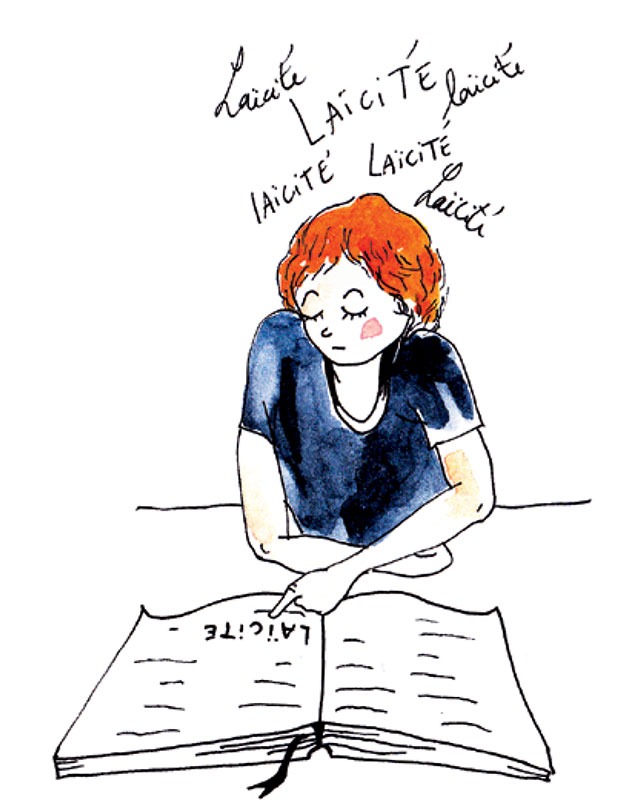 Laïcité
LAïCiTÉ
laïcité
lAïCiTÉ
LAïCiTÉ
Laïcité
LAÏCITE